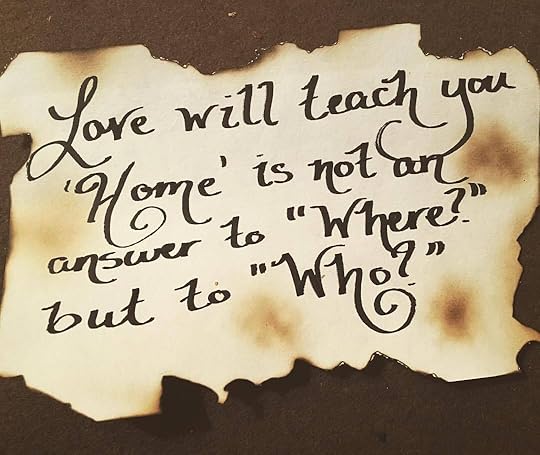 Love will teach you
'Home' is not an
answer to "Where?"
but to "Who?"